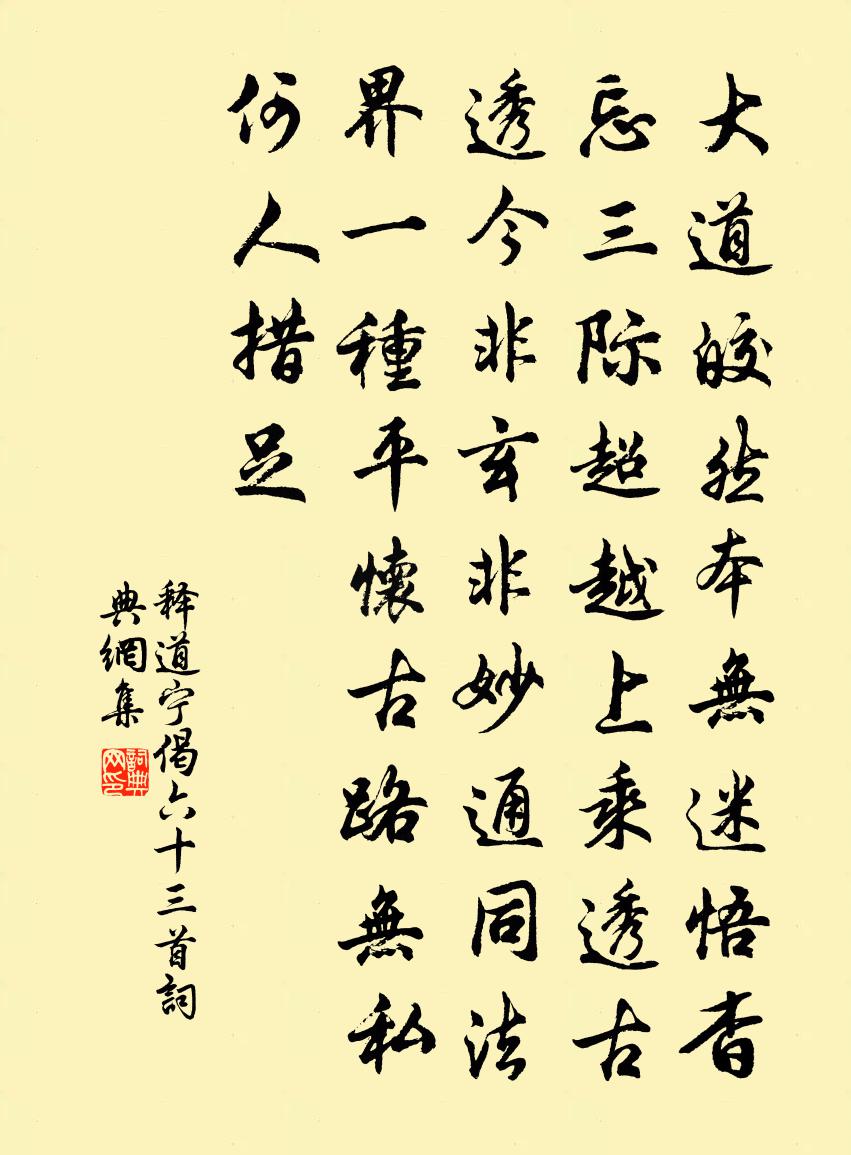 大道皎然本無迷悟杳
忘三际超越上乘透古
透今非玄非妙通同法
界一種平懷古路無私
何人措足
释道宁偈六十三首詞
典網集
詞典網印